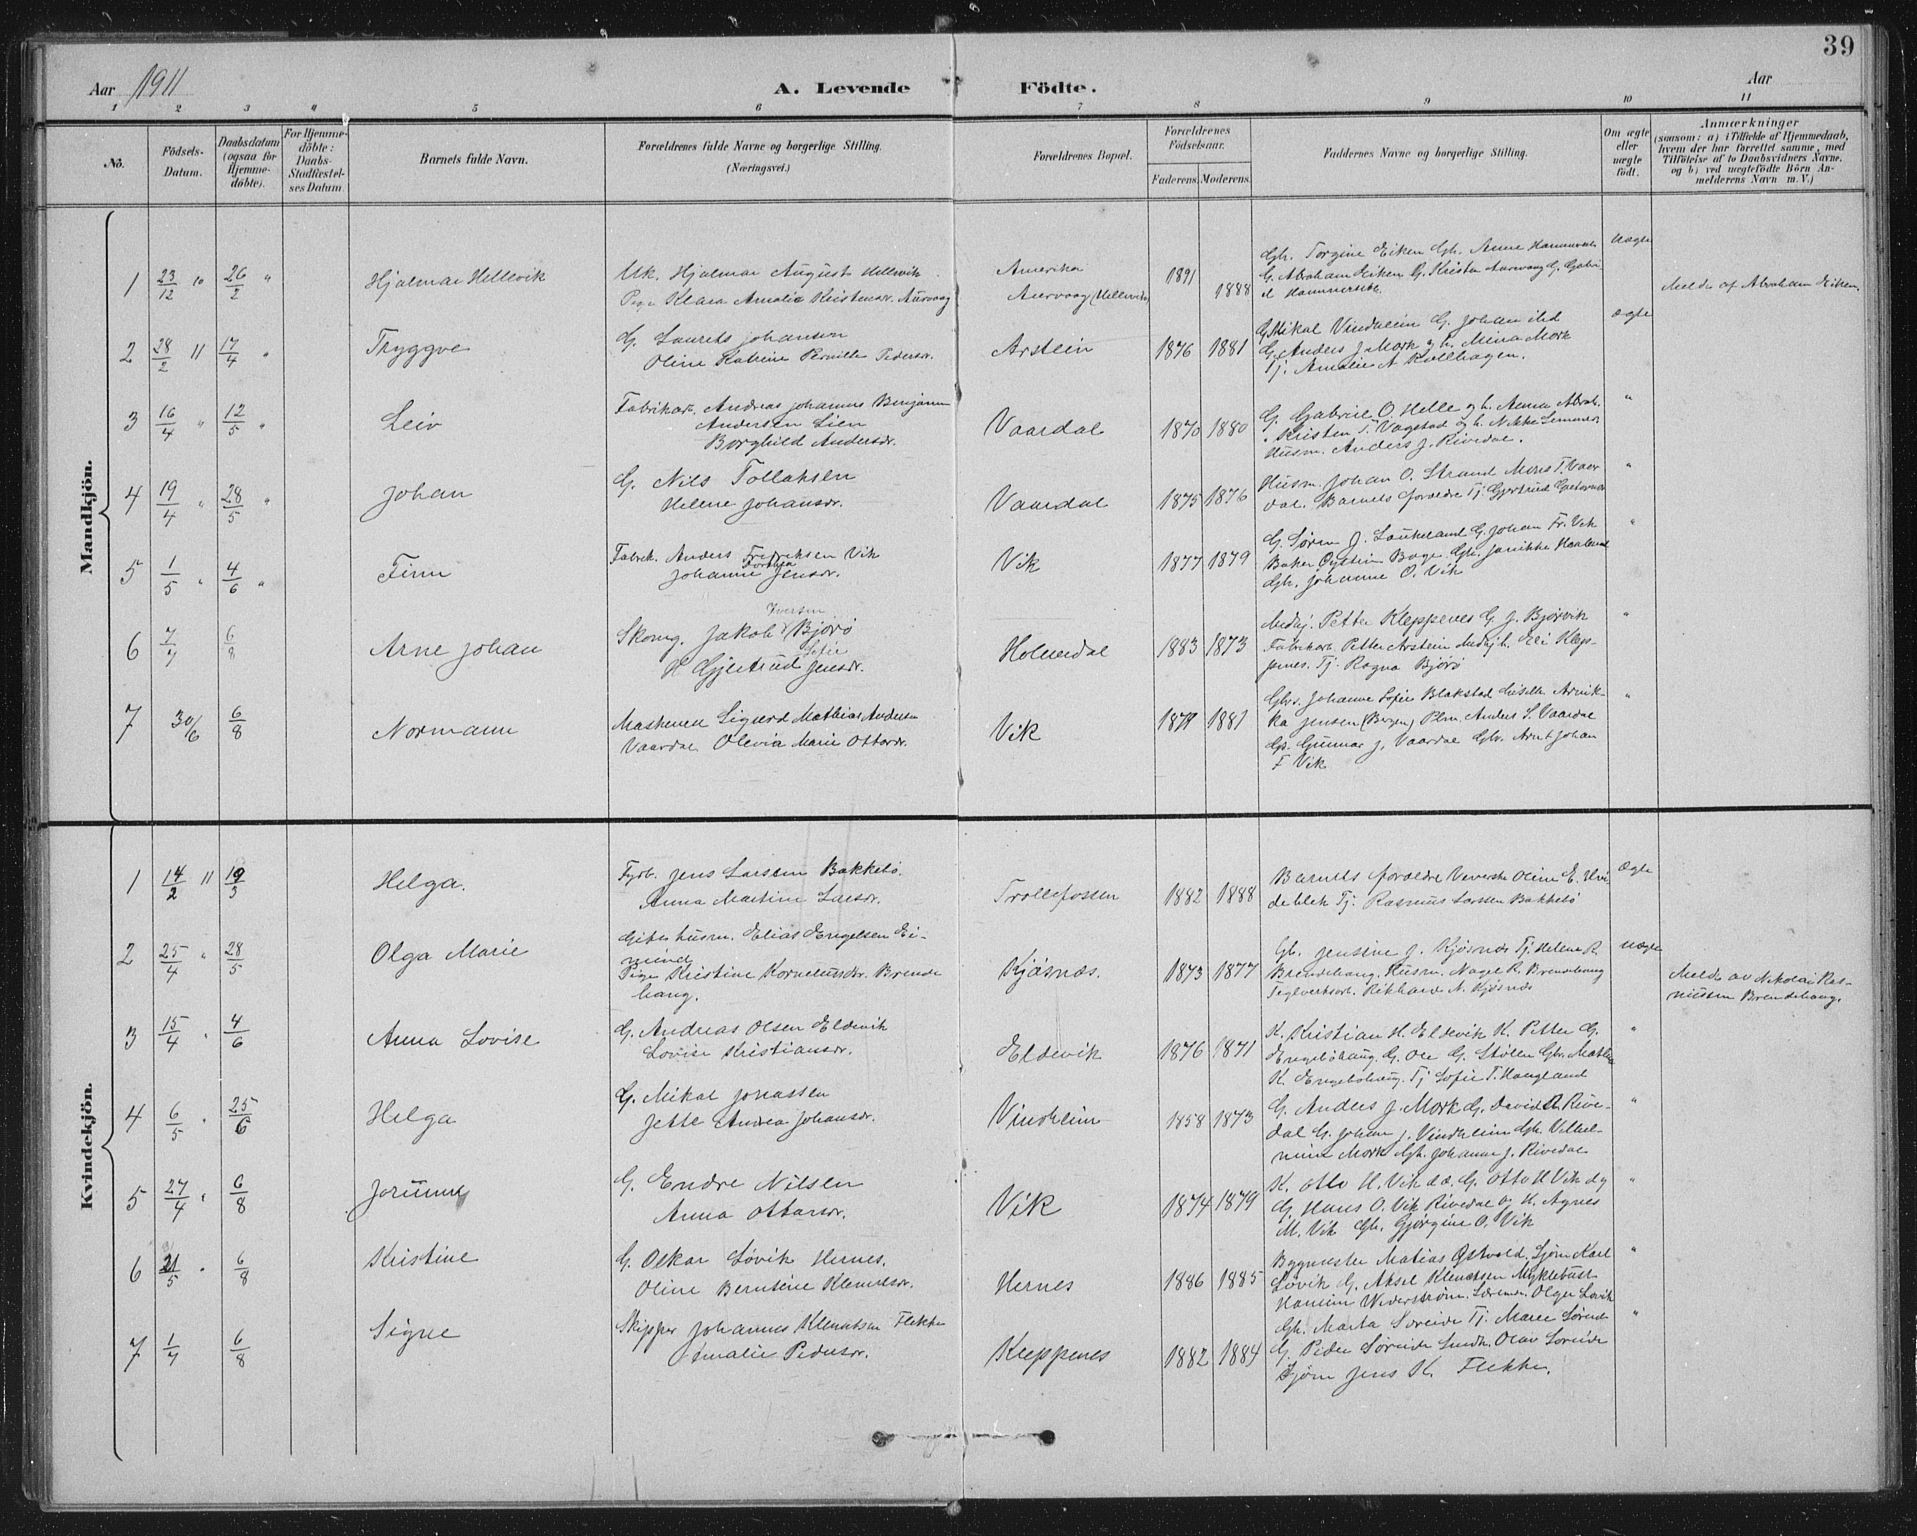 39
Aar 1911 A. Levende Födte. Aar
1 2 3 4 5 6 7 8 9 10 11
Nö. Födsels-Datum. Daabsdatum (ogsaa for Hjemmedöbte). For Hjemmedöbte: Daabs-Stadfæstelses Datum Barnets fulde Navn. Forældrenes fulde Navne og borgerlige Stilling. (Næringsvei.) Forældrenes Bopæl. Forældrenes Födselsaar. Faderens. Moderens. Faddernes Navne og borgerlige Stilling. Om ægte eller uægte födt. Anmærkninger (saasom: a) i Tilfælde af Hjemmedaab, hvem der har forrettet samme, med Tilföielse af to Daabsvidners Navne, og b) ved uægtefödte Börn Anmelderens Navn m. V.)
Mandkjön.
1 23/12 10 26/2 " Hjalmar Hellevik
Uk. Hjalmar August Hellevik
Pige Klara Amalie Kristensdr. Aurvaag
Amerika
Aurvaag (Hellevik)
1891 1888
Gh. Torgine Eiken Gh. Anne Hammerseth
G. Abraham Eiken G. Kristen Aurvaag G. Gabri
el Hammerseth.
Uægte
Meldt af Abraham Eiken.
2 28/2 11 17/4 " Tryggve
G. Laurits Johansen
Oline Katrine Pernille Pedersdr.
Arstein 1876 1881
G. Mikal Vindheim G. Johan ibd
G. Anders J. Mork og h. Mina Mork
Tj. Amalie A
ægte
3 16/4 " 12/5 " Leiv
Fabrikar. Andreas Johannes Benjamin
Andersen Lien
Borghild Andersdr.
Vaardal 1870 1880
G. Gabriel O. Helle og h. Anna Abrah.
Kristen T. Vagstad og h. Nikka
Husm. Anders J. Rivedal.
"
4 19/4 " 28/5 " Johan
G. Nils Tollaksen
Helene Johansdr.
Vaardal 1875 1876
Husm. Johan O. Strand Mons T. Vaar
dal. Barnets forældre Tj. Gjertrud
"
5 1/5 " 4/6 " Finn
Fabrik. Anders Fredriksen Vik
Johanne Forthea Jensdr.
Vik 1877 1879
G. Søren J. Laukeland G. Johan Fr. Vik
Baker Øystein Bage Gh. Janikke
Gh. Johanne O. Vik
"
6 7/7 6/8 Arne Johan
Skomg. Jakob Iversen Bjorø
H Gjertrud Sofie Jensdr.
Holmedal 1883 1873
Petter Kleppenes G. J. Bjørvik
Fabrikarb. Petter Arstein Eli Klep-
penes. Tj. Ragna Bjorø
"
7 30/6 6/8 Normann
Maskinen Sigurd Mathias Andersen
Vaardal Olevia Marie Ottarsdr.
Vik 1879 1881
Johanne Sofie Blakstad
ka Jensen (Bergen) Anders S. Vaardal
Gs. Gunnar J. Vaardal Gbr. Arnt Johan
F Vik
"
Kvindekjön.
1 14/2 11 19/3 Helga.
Fyrb. Jens Larsen Bakkebø.
Anna Martine Larsdr.
Trollefossen 1882 1888
Barnets forældre Væverske Oline E. Hvi
deblik Tj. Rasmus Larssen Bakkebø
Ægte
2 25/4 " 28/5 Olga Marie
Gifte husm. Elias Engelsen Ei-
mind
Pige Kristine Korneliusdr. Brende
hang.
Kjøsnæs. 1873 1877
Gh. Jensine J. Kjøsnæs Tj. Helene R.
Brendehang. Husm. Nagel R. Brendehang
Teglverksarb. Rikhard N. Kjøsnæs
uægte
Meldt av Nikolai Ras-
mussen Brendehang.
3 15/4 " 4/6 Anna Lovise
G. Andreas Olsen Eldevik
Lovise Kristiansdr.
Eldevik 1876 1871
K. Kristian H. Eldevik K. Petter G.
Engebøhaug. G. Ole G. Stølen Gbr. Mathea
K. Engebøhaug. Tj Sofie T. Haugland
"
4 6/5 " 25/6 Helga
G. Mikal Jonassen
Jette Andrea Johansdr.
Vindheim 1858 1873
G. Anders J. Mork G. David A. Rive-
dal G. Johan J. Vindheim Gh. Vilhel-
mine Mork Gh. Johanne J. Rivedal
"
5 27/4 " 6/8 Jorunn
G. Endre Nilsen
Anna Ottarsdr.
Vik 1874 1879
K. Otto H. Vik d.æ. G. Otto H Vik d y
G. Hans O. Vik Rivedal og K. Agnes
M. Vik Gh. Gjørgine O. Vik
"
6 21/5 " 6/8 Kristine
G. Oskar Løvik Hernes.
Oline Berntine Klemetsdr.
Hernes 1886 1885
Bygmester Matias Østvold. Sjøm Karl
Løvik G. Aksel Klemetsen Myklebust
Wederstrøm. Olger Løvik
"
7 1/7 6/8 Signe
Skipper Johannes Klemetsen Flekke
Amalie Pedersdr.
Kleppenes 1882 1884
Gh. Marta Søreide Tj. Marie Søreide
G. Peder Søreide Olav Søreide
Sjøm Jens K. Flekke.
"